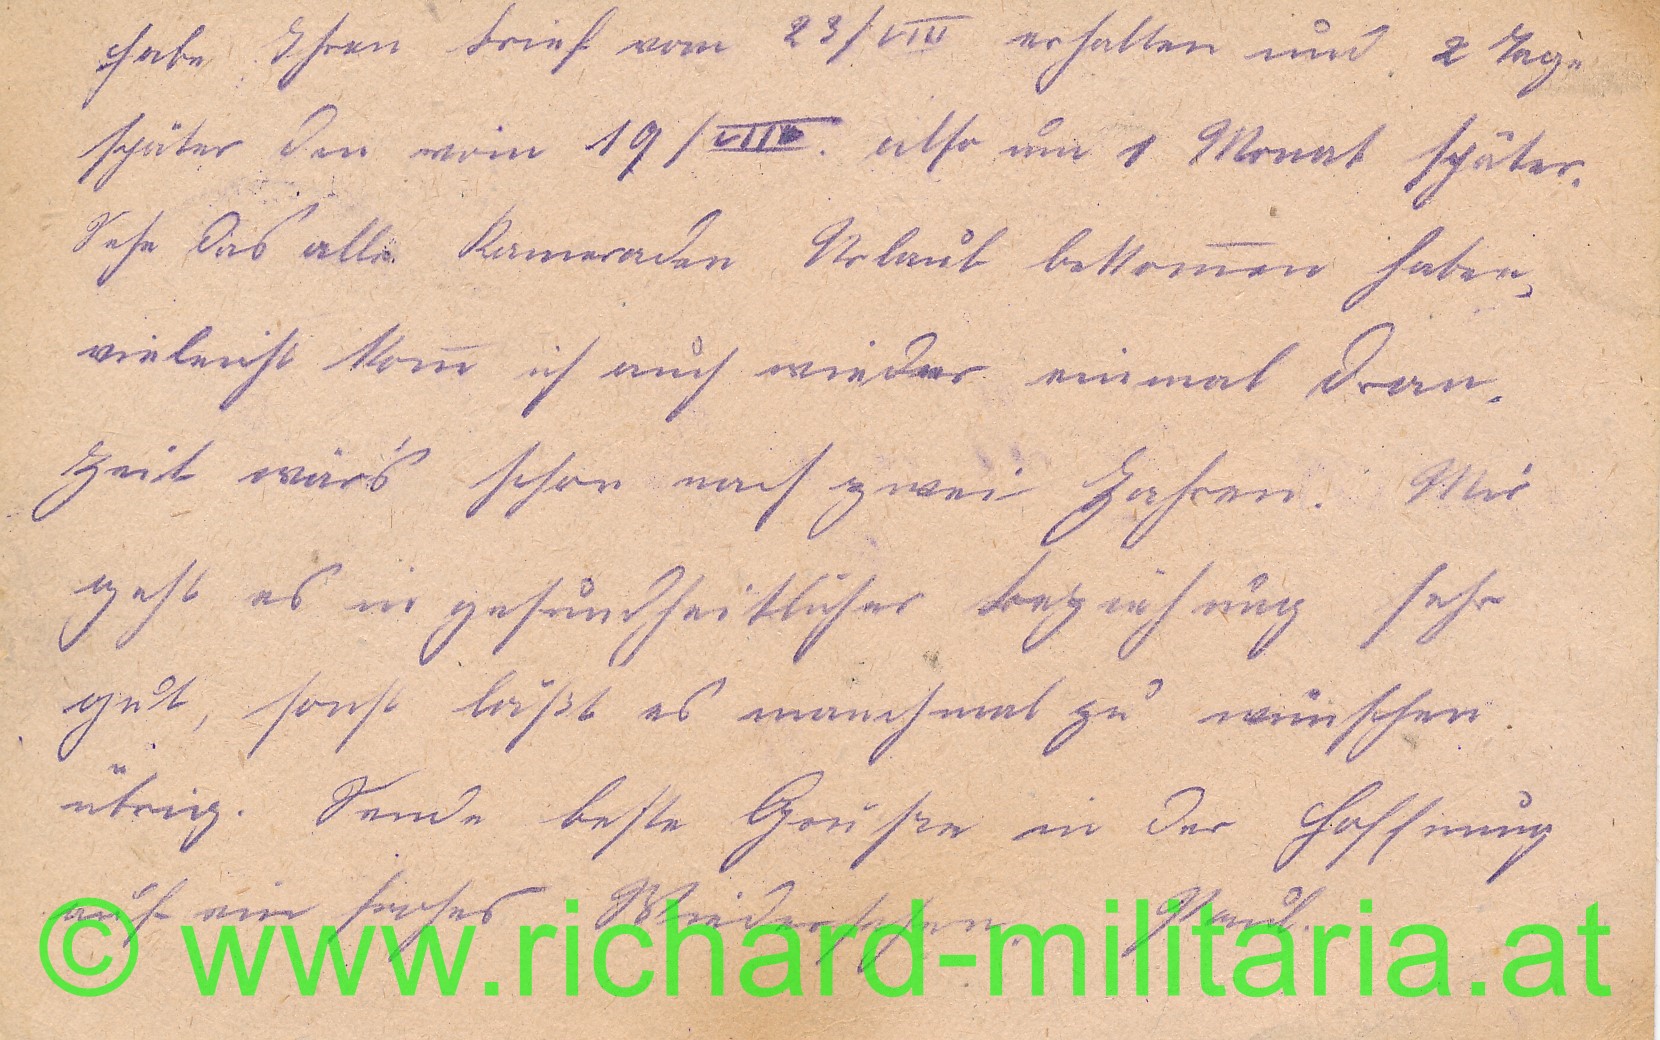 habe Ihren Brief vom 23/VIII erhalten und 2 Tage
später den vom 19/VIII. also um 1 Monat später.
Sehe das alle Kameraden Urlaub bekkom̅en haben,
vieleicht kom̅ ich auch wieder einmal dran.
Zeit wär's schon nach zwei Jahren. Mir
geht es in gesundheitlicher Beziehung sehr
gut, sonst läßt es manchmal zu wünschen
übrig. Sende beste Grüße in der Hoffnung
auf ein frohes Wiedersehen. Paul.
© www.richard-militaria.at